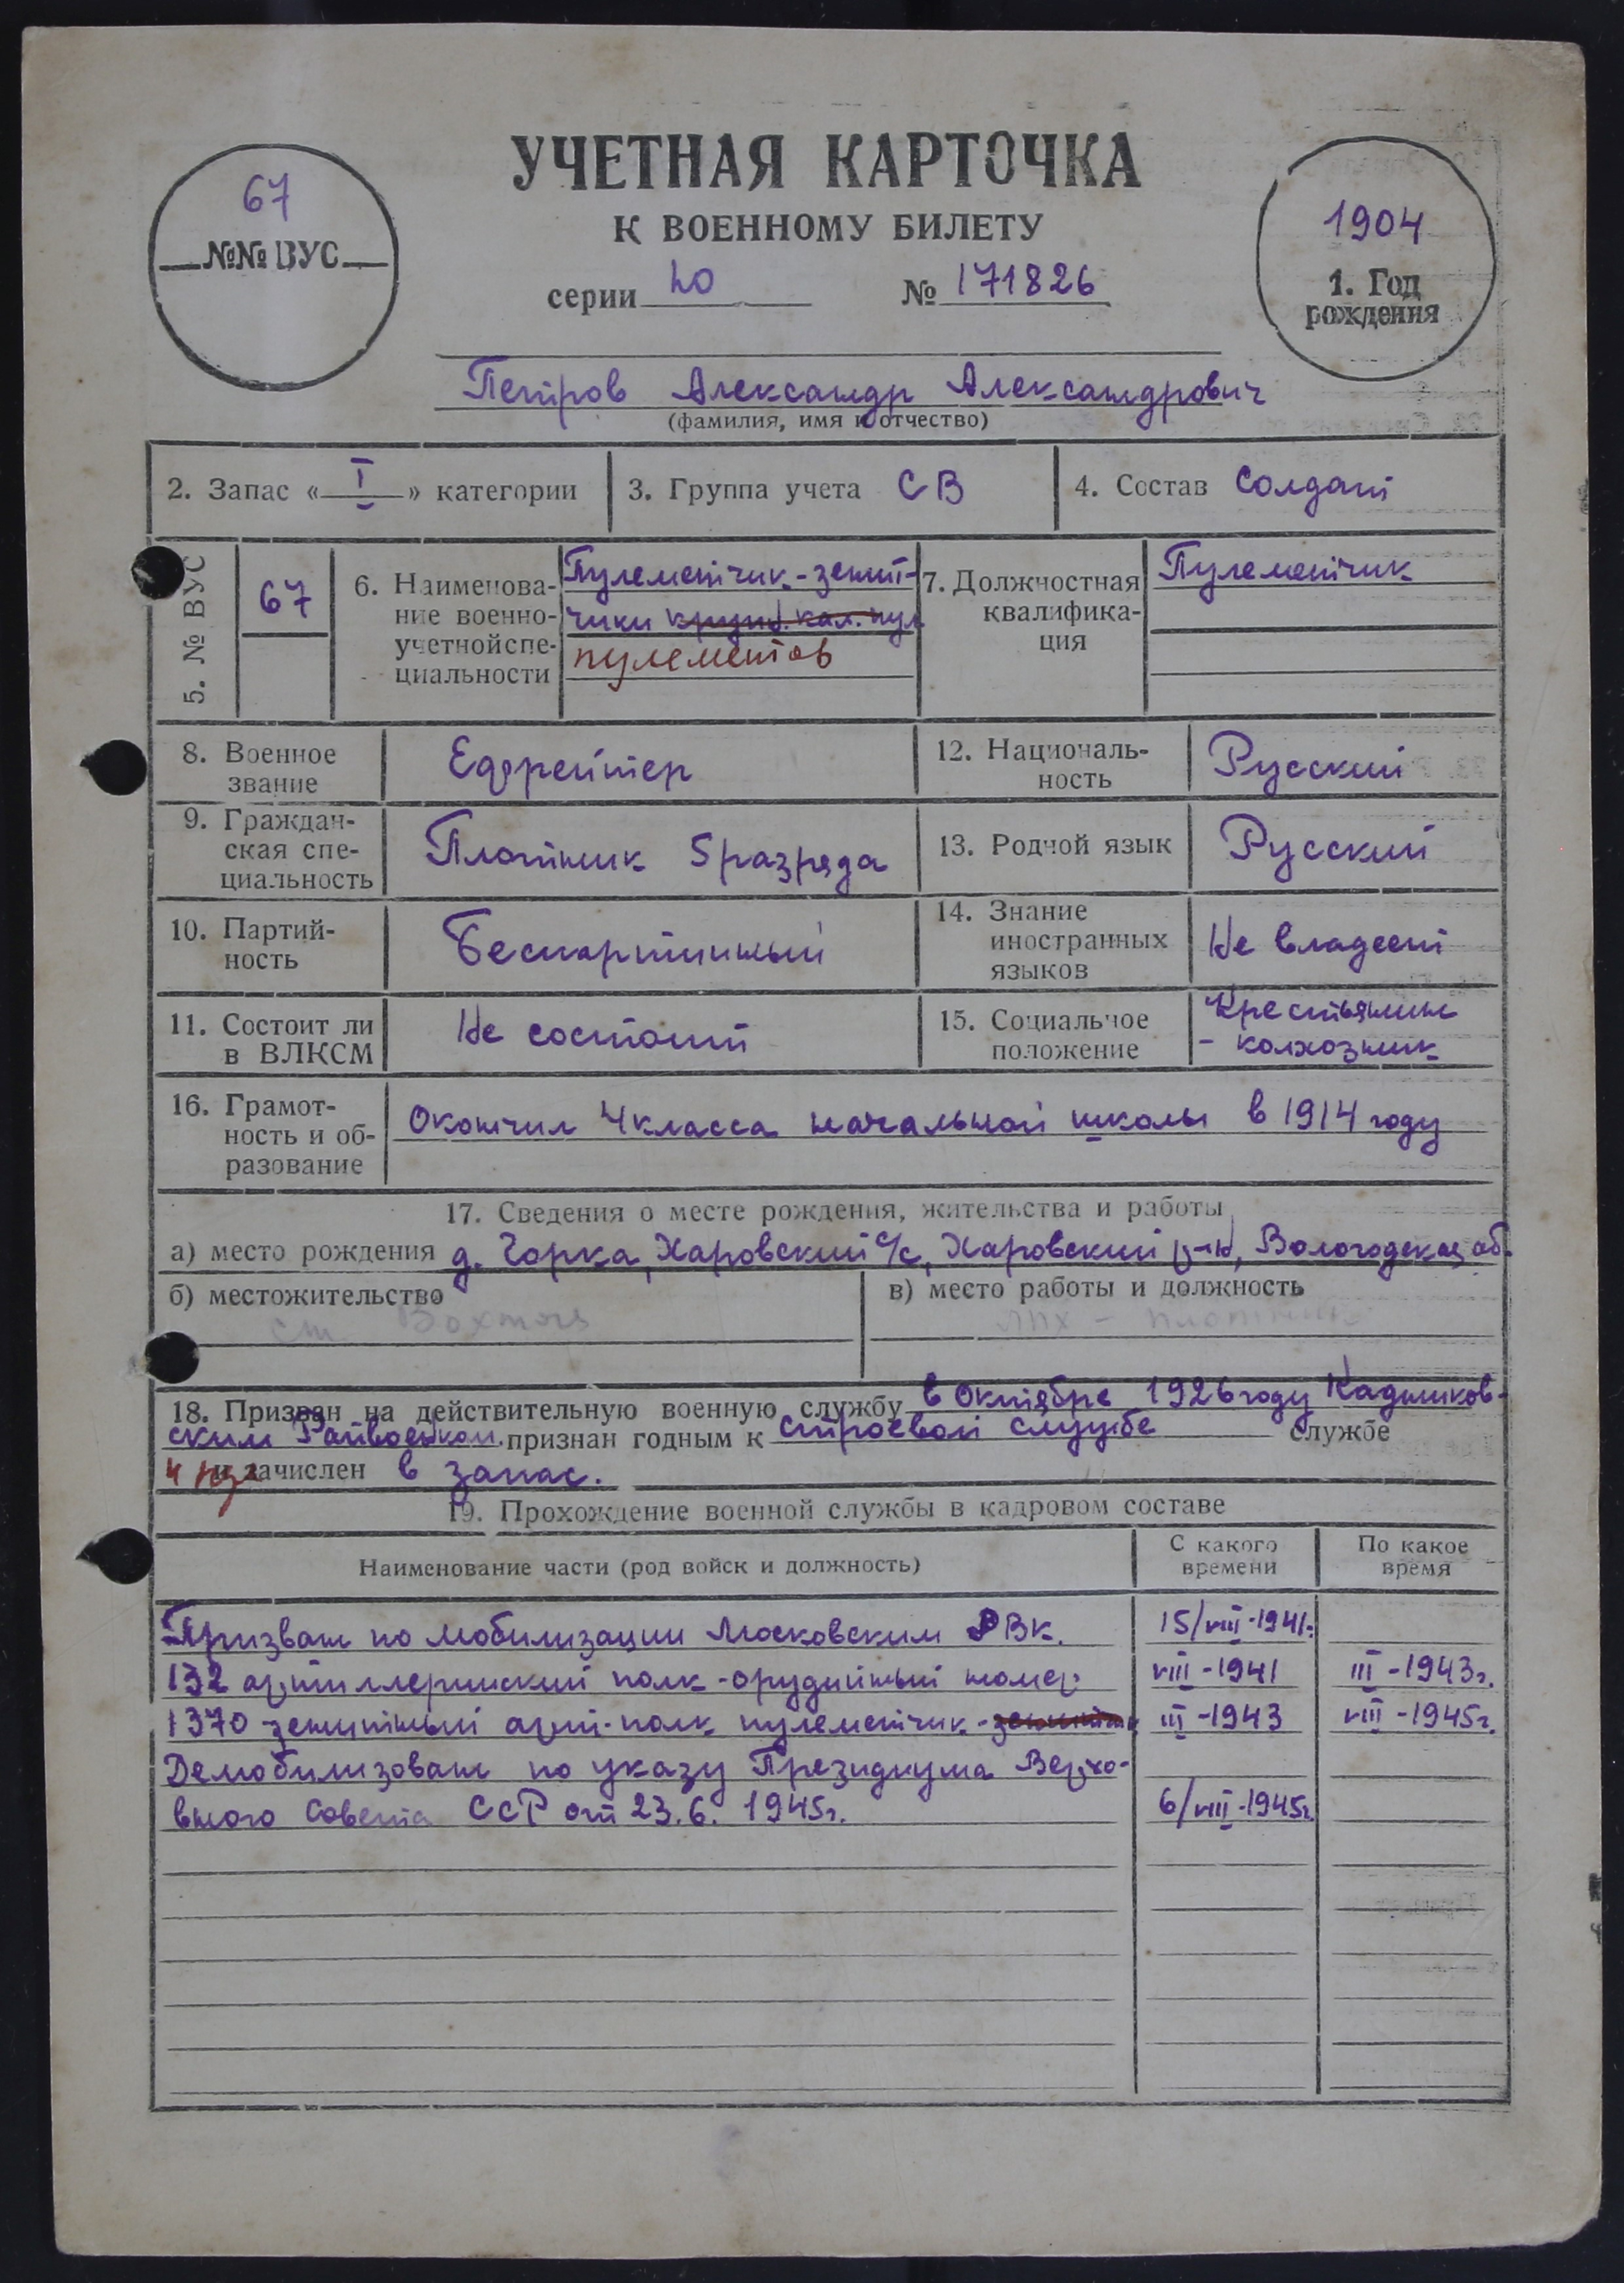 УЧЕТНАЯ КАРТОЧКА
К ВОЕННОМУ БИЛЕТУ
67
№№ ВУС
серии № 171826
1904
1. Год
рождения
Петров Александр Александрович
(фамилия, имя и отчество)
2. Запас « I » категории
3. Группа учета СВ
4. Состав Солдат
5. № ВУС
67
6. Наименова-
ние военно-
учетнойспе-
циальности
Пулеметчик-зенит-
чики крупн. кал. пул
пулеметов
7. Должностная
квалифика-
ция
Пулеметчик
8. Военное
звание
Ефрейтер
12. Националь-
ность
Русский
9. Граждан-
ская спе-
циальность
Плотник 5 разряда
13. Родной язык
Русский
10. Партий-
ность
Беспартийный
14. Знание
иностранных
языков
Не владеет
11. Состоит ли
в ВЛКСМ
Не состоит
15. Социальное
положение
Крестьянин
- колхозник
16. Грамот-
ность и об-
разование
Окончил 4 класса начальной школы в 1914 году
17. Сведения о месте рождения, жительства и работы
а) место рождения д. Горка, Харовский с/с, Харовский р-н, Вологодская об.
б) местожительство
ст. Вохтога
в) место работы и должность
ЛПХ - плотник
18. Призван на действительную военную службу в Октябре 1926 году Кадников-
ским Райвоенком. признан годным к строевой службе службе
и зачислен в запас.
19. Прохождение военной службы в кадровом составе
Наименование части (род войск и должность)
С какого
времени
По какое
время
Призван по мобилизации Московским РВК. 15/VIII-1941г.
132 артиллерийский полк-орудийный номер VIII-1941 III-1943г.
1370 зенитный арт-полк пулеметчик-зенитчик III-1943 VIII-1945г.
Демобилизован по указу Президиума Верхо-
вного Совета ССР от 23.6. 1945г. 6/VIII-1945г.